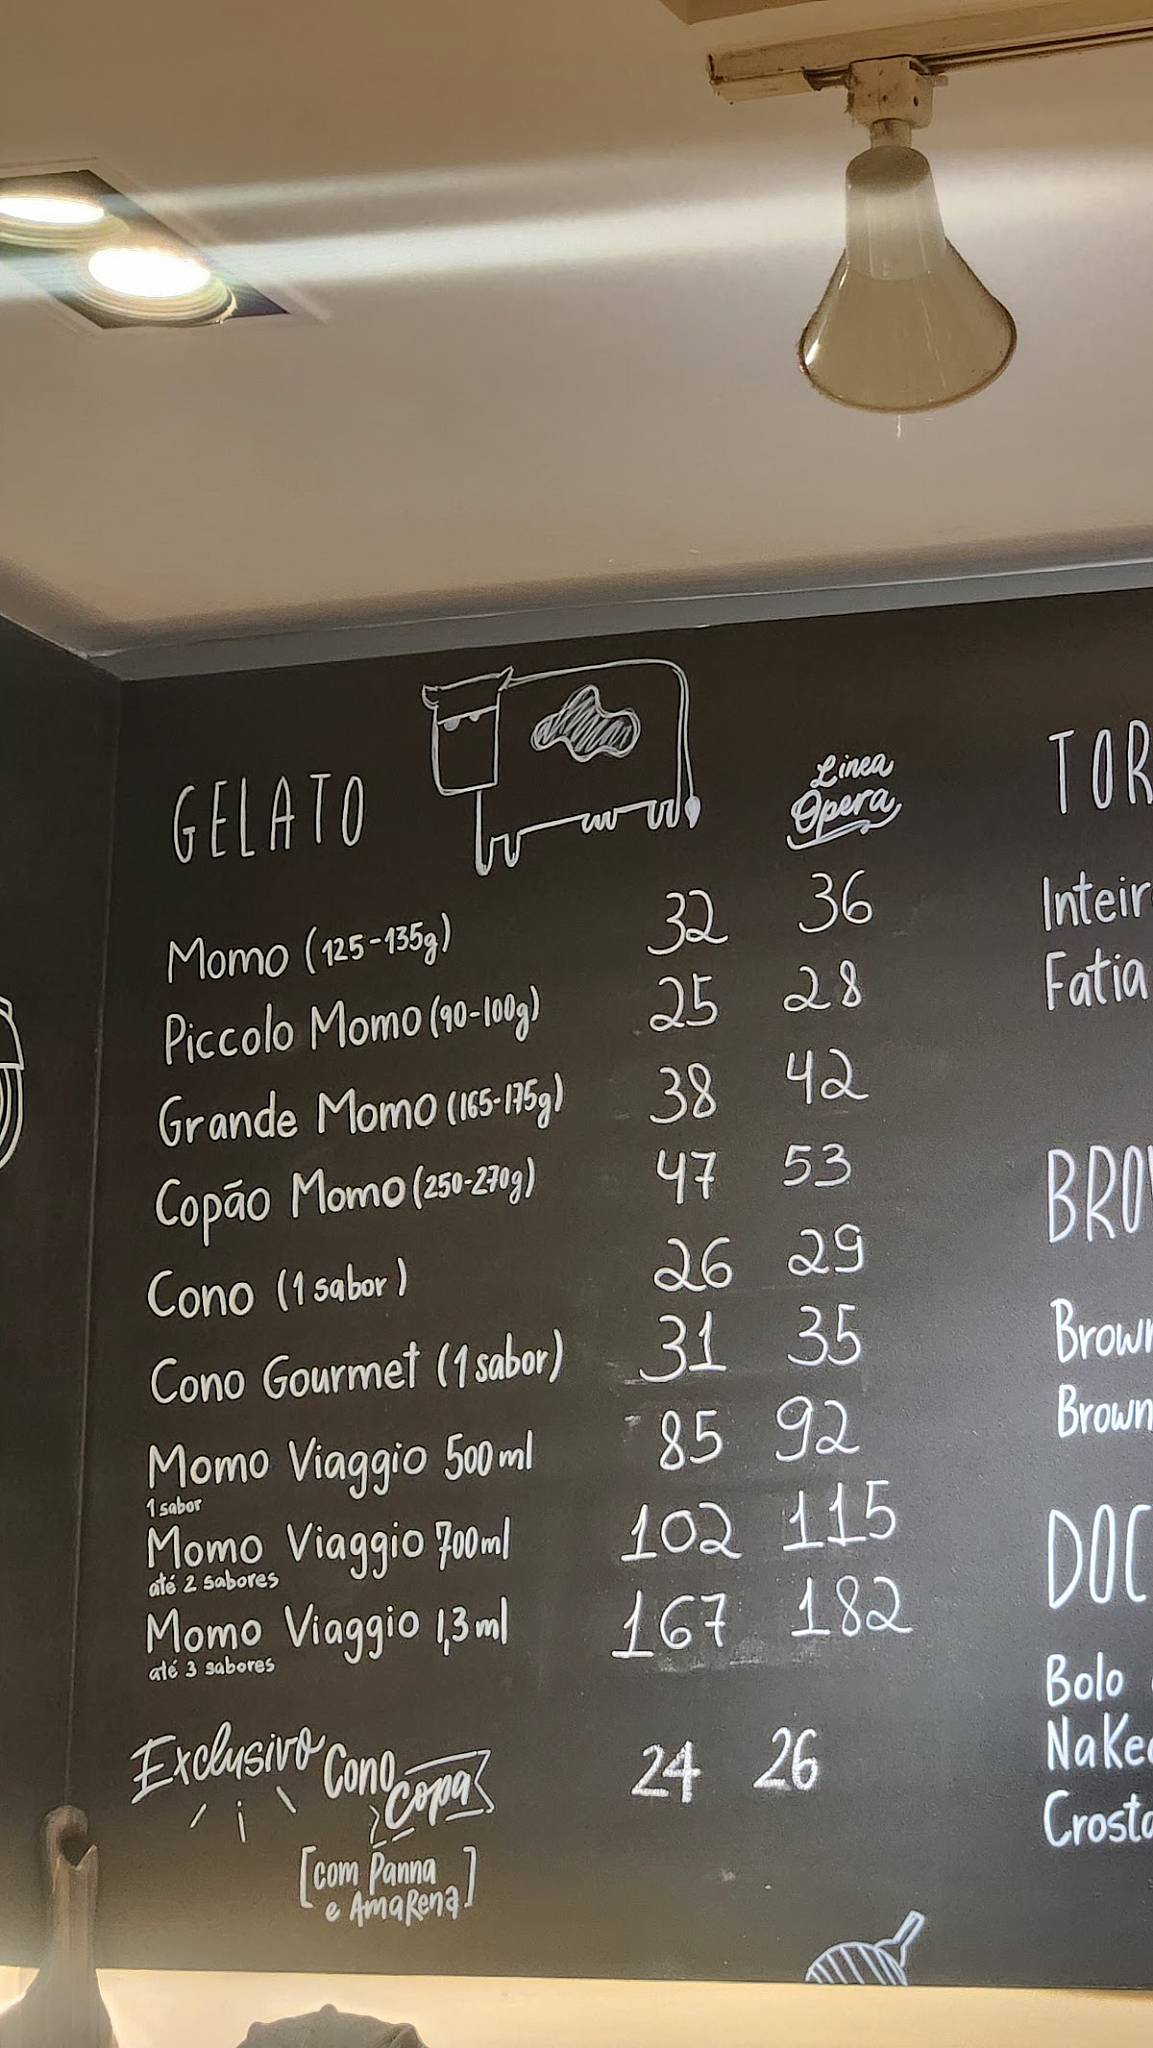 GELATO
Linea
Opera
Momo (125-135g) 32 36
Piccolo Momo (90-100g) 25 28
Grande Momo (165-175g) 38 42
Copão Momo (250-270g) 47 53
Cono (1 sabor) 26 29
Cono Gourmet (1 sabor) 31 35
Momo Viaggio 500ml 85 92
1 sabor
Momo Viaggio 700ml 102 115
até 2 sabores
Momo Viaggio 1,3ml 167 182
até 3 sabores
Exclusivo Cono Copa 24 26
[com Panna
e AmaRena]
TOR
Inteir
Fatia
BRO
Brown
Brown
DOC
Bolo
Nake
Crosta